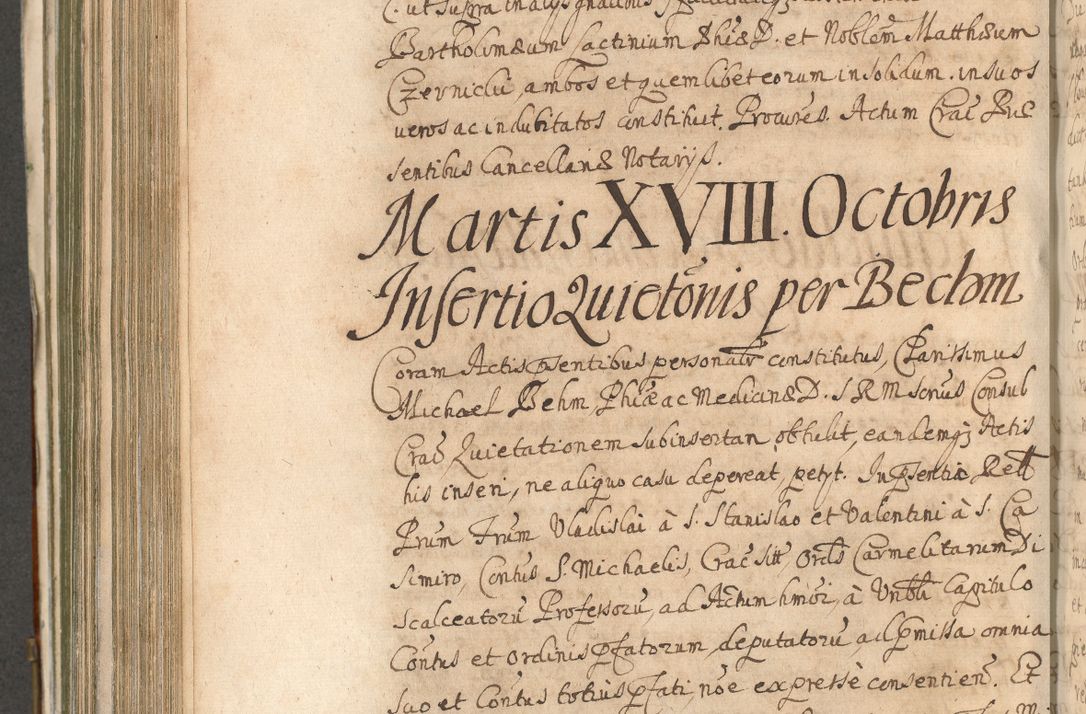 C. ut supra in
Bartholimæum Lactinium Phiæ D. et Noblem Matthæum
Czerniclii, ambos et quemlibet eorum in solidum. in suos
veros ac indubitatos constituit Procures. Actum Crac Præ
sentibus Cancellariæ Notarijs.
Martis XVIII. Octobris
Insertio Quietonis per Bechm
Coram Actis psentibus personalr constitutus, Clarissimus
Michael Behm Phiæ ac Medicinæ D. S R M scrius Consul
Crac Quietationem subinsertam obtulit, eandemq; Actis
his inseri, ne aliquo casu depereat, petyt. In psentia Rell
Prum Frum Vladislai à S. Stanislao et Valentini à S. Ca
simiro, Contus S. Michaelis, Crac sitt, Ords Carmelitarum Di
scalceatorū Professorū, ad Actum hmoi, à Vnbli Capitulo
Contus et Ordinis pfatorum deputatorū ad pmissa omnia
suo et Contus totius pfati noe expresse consentien. Et